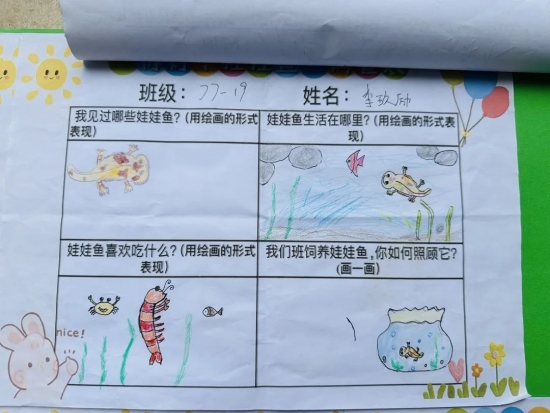 班级：77-19 姓名：李玖励
我见过哪些娃娃鱼？(用绘画的形式
表现)
娃娃鱼生活在哪里？(用绘画的形式表
现)
娃娃鱼喜欢吃什么？(用绘画的形式
表现)
我们班饲养娃娃鱼,你如何照顾它？
(画一画)
nice!